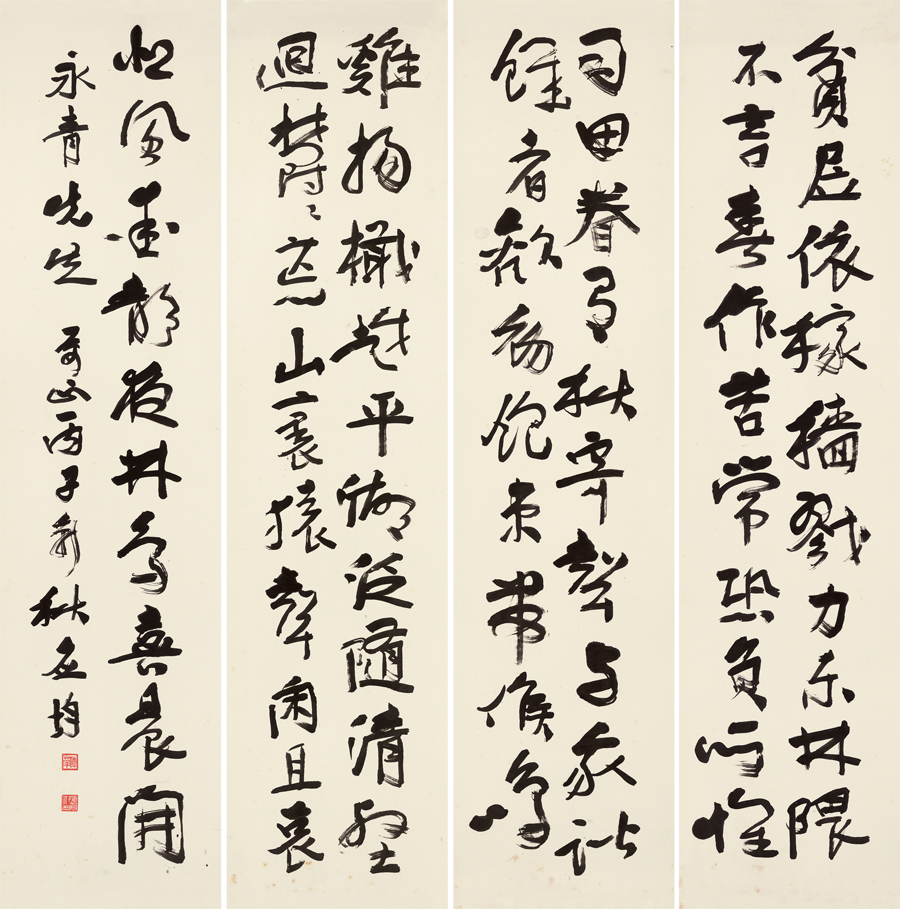 貧居依稼穡戮力東林隈
不言春作苦常恐負所懷
司田眷有秋寄聲与我諧
饑者歡初飽束帶候鳴
雞揚檝越平湖泛隨清壑
迴欝〻荒山裏猿聲闲且哀
悲風愛靜夜林鳥喜晨開
永青先生 正丙子新秋应均